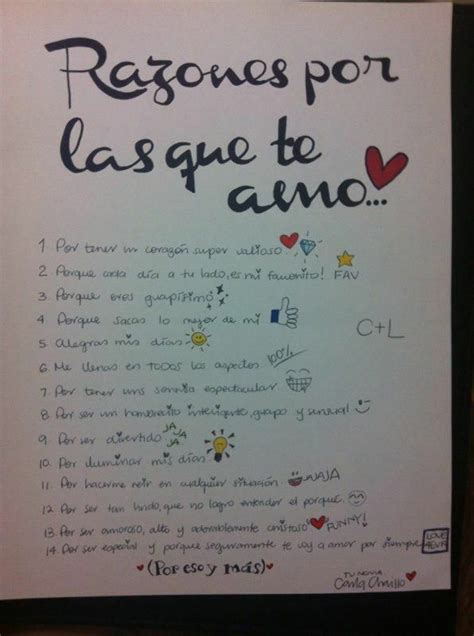 Razones por
las que te
amo...
1. Por tener un corazón super valioso
2. Porque cada día a tu lado, es mi favorito! FAV
3. Porque eres guapísimo
4. Porque sacas lo mejor de mi
C+L
5. Alegras mis días
6. Me llenas en TODOS los aspectos 100%
7. Por tener una sonrisa espectacular
8. Por ser un hombrecito inteligente, guapo y sensual
9. Por ser divertido JA JA JA
10. Por iluminar mis días
11. Por hacerme reir en cualquier situación JAJA
12. Por ser tan lindo, que no logro entender el porque.
13. Por ser amoroso, alto y adorablemente chistoso FUNNY!
14. Por ser especial y porque seguramente te voy a amar por siempre LOVE 4EVR
(Por eso y más)
TU NOVIA
Carla